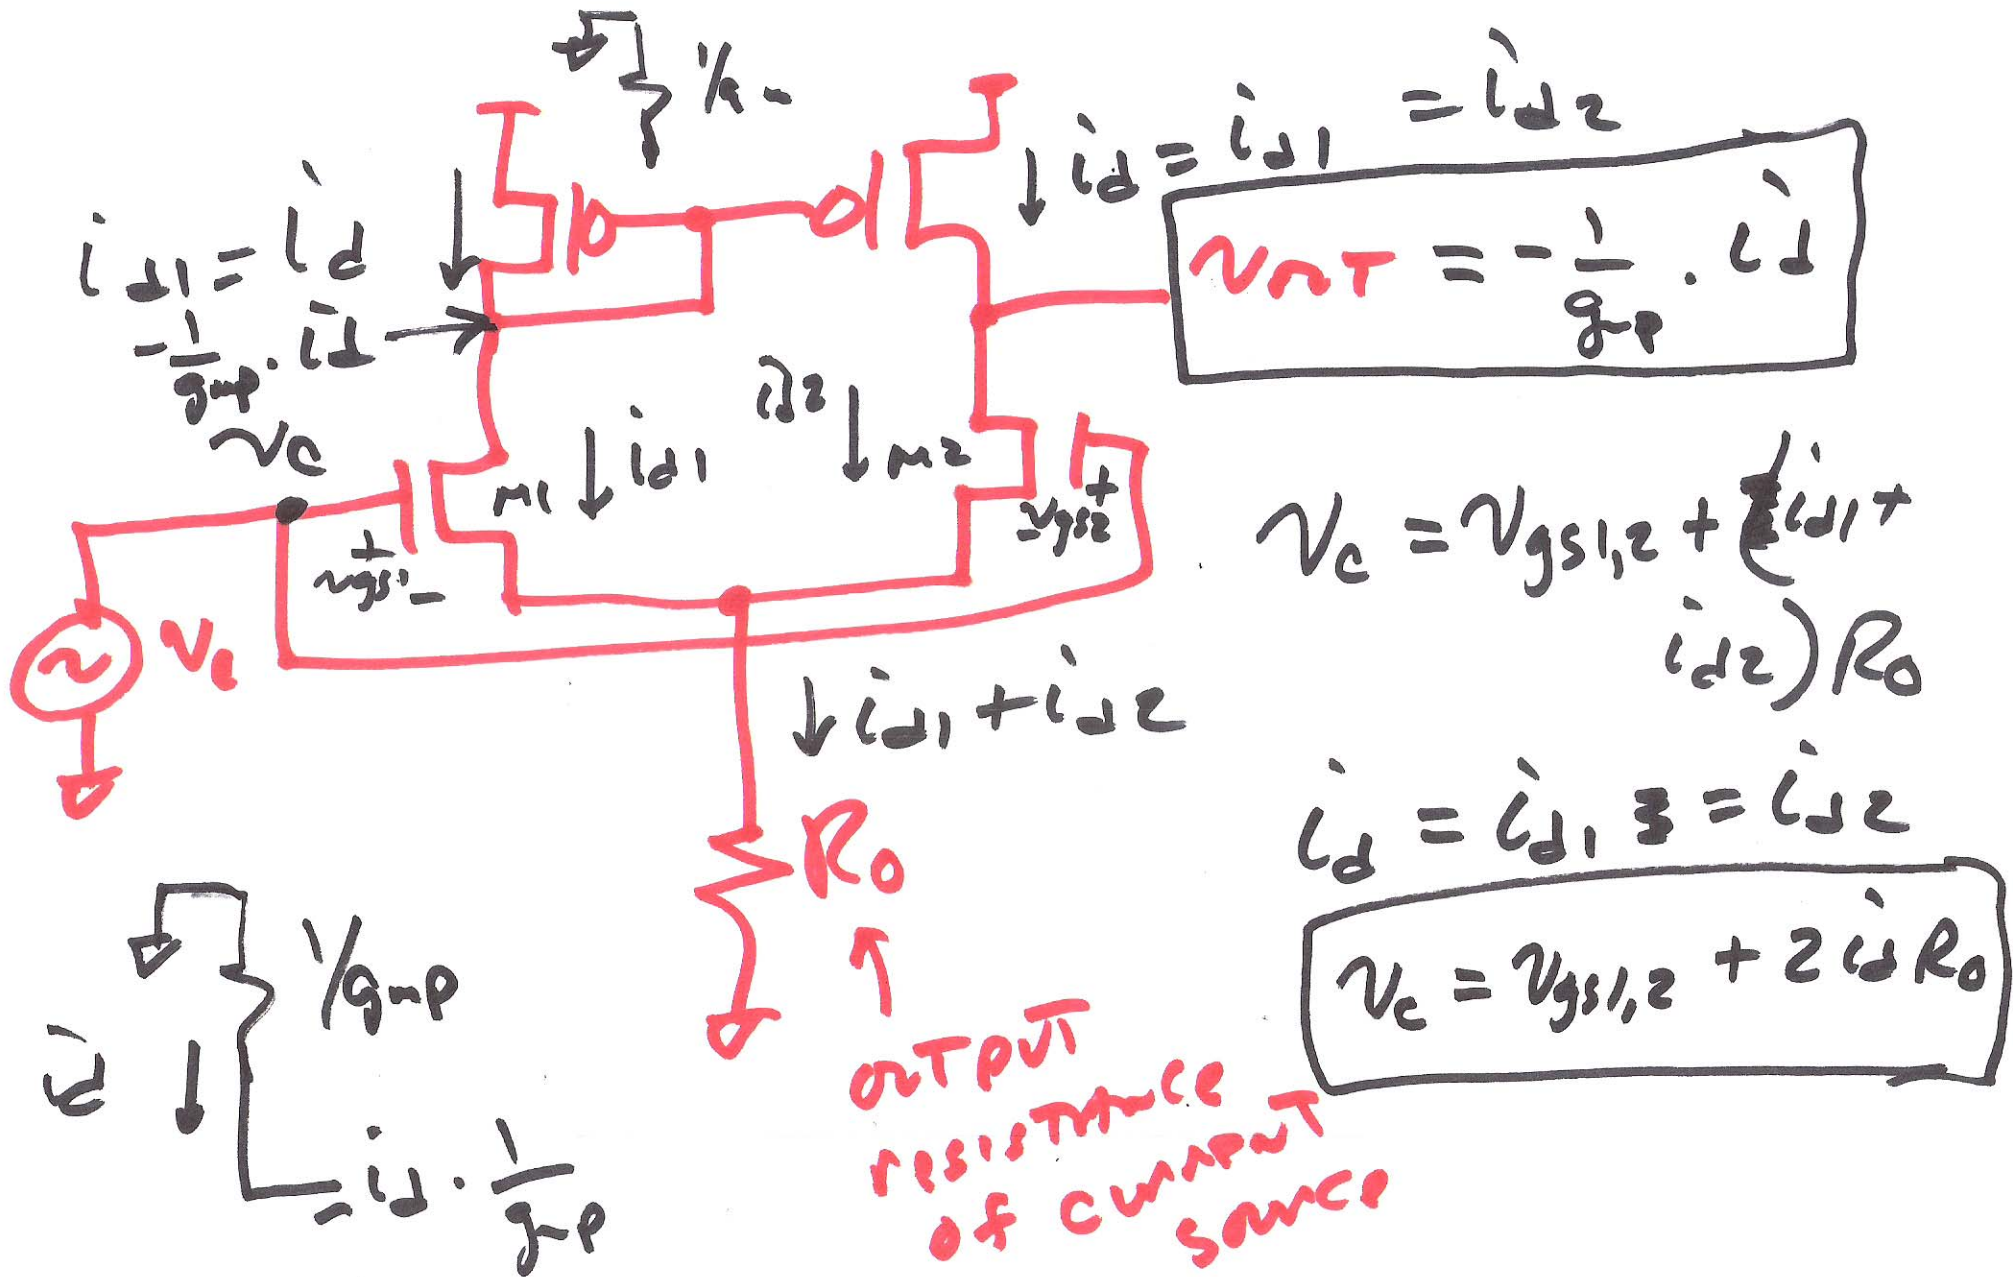 1/gm
id = id1 = id2
id1 = id
vOUT = - 1/gmp · id
- 1/gmp · id
vc
id2
M1
id1
M2
+
vgs1
-
+
vgs2
-
vc = vgs1,2 + (id1 +
id2) Ro
vc
id1 + id2
Ro
id = id1 = id2
vc = vgs1,2 + 2 id Ro
1/gmp
id
- id · 1/gmp
OUTPUT
resistance
of current
source